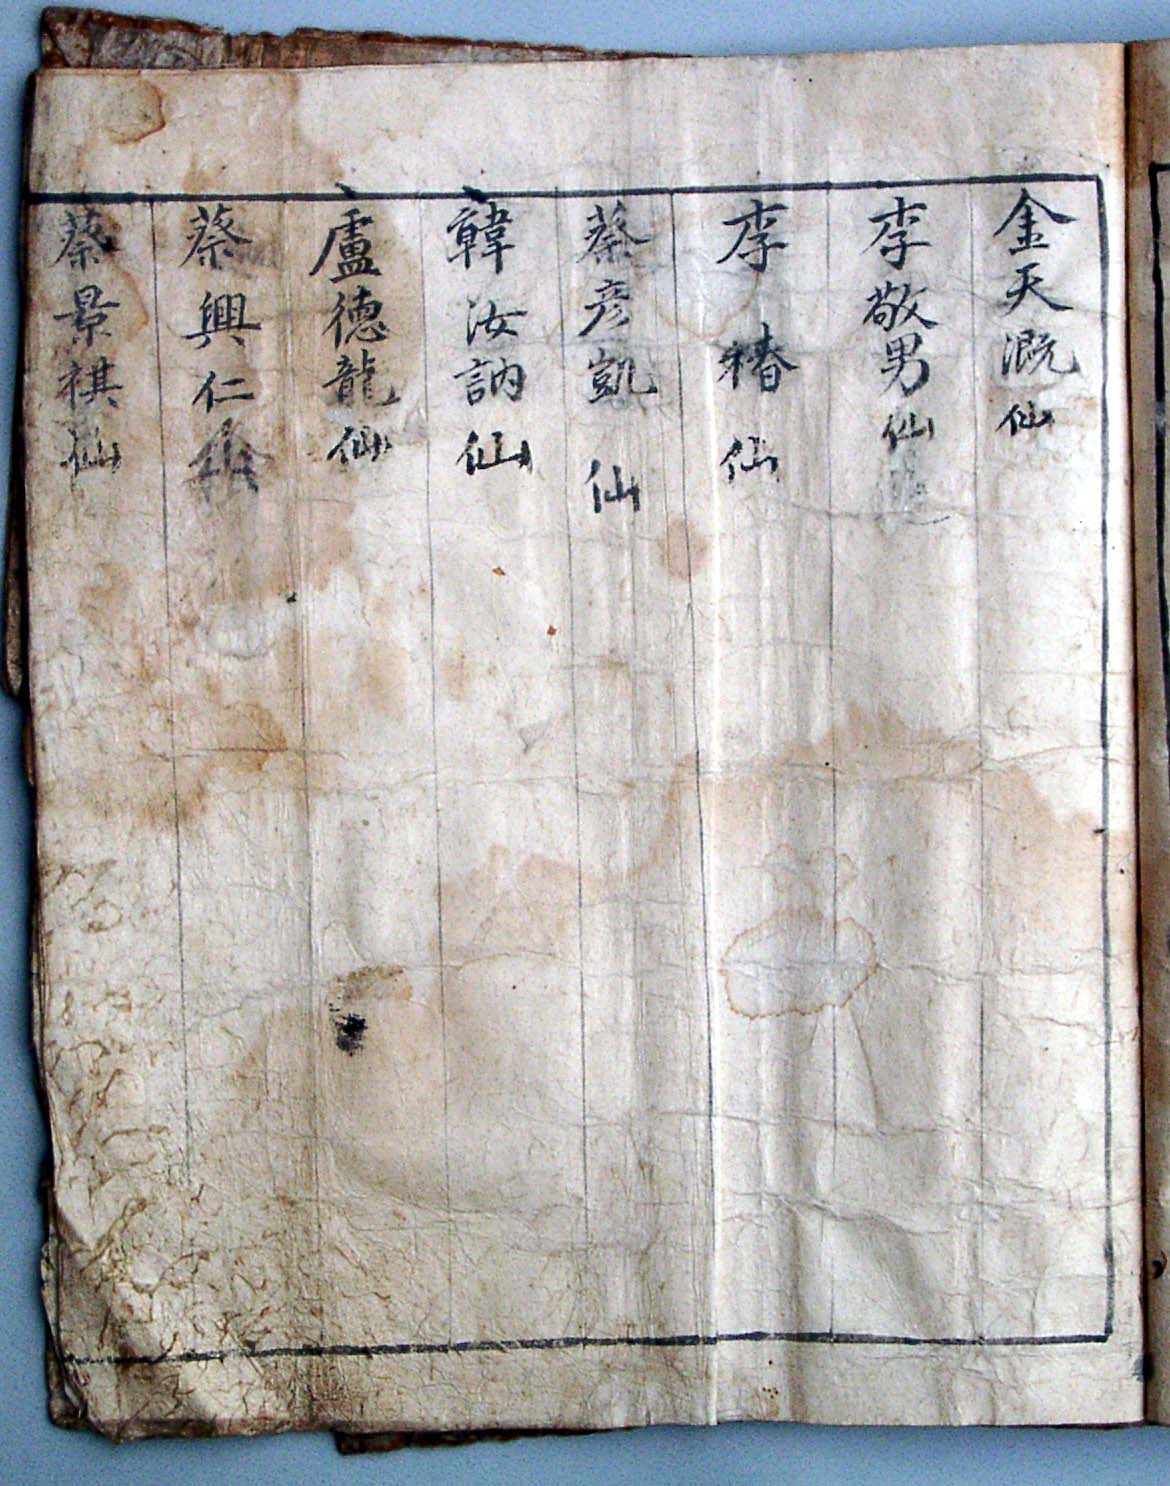 金天漑仙
李敬男仙
李椿仙
蔡彦凱仙
韓汝訥仙
盧德龍仙
蔡興仁仙
蔡景祺仙